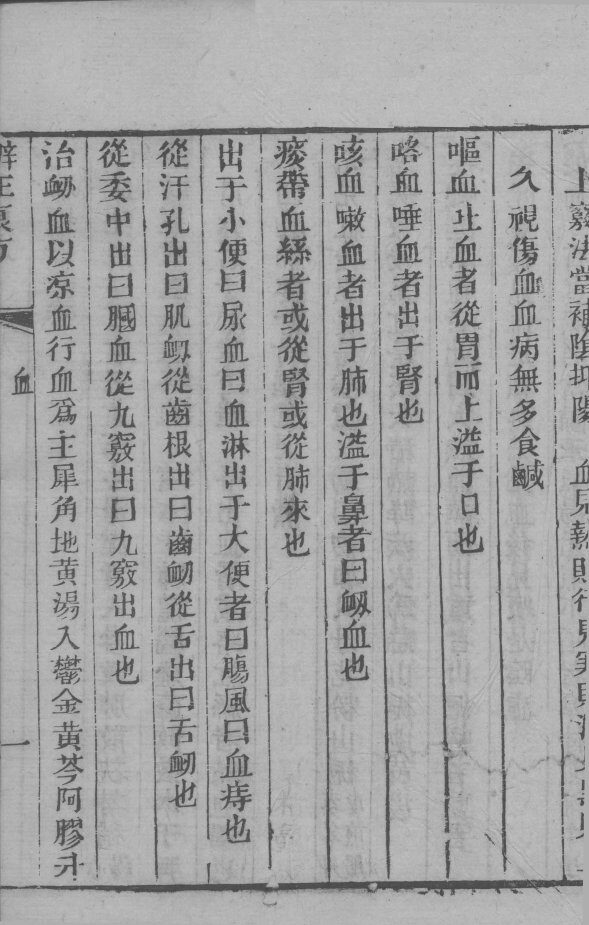 上竅法當補陰抑陽 血見熱則行見寒則
久視傷血血病無多食鹹
嘔血止血者從胃而上溢于口也
咯血唾血者出于腎也
咳血嗽血者出于肺也溢于鼻者曰衂血也
痰帶血絲者或從腎或從肺來也
出于小便曰尿血曰血淋出于大便者曰腸風曰血痔也
從汗孔出曰肌衂從齒根出曰齒衂從舌出曰舌衂也
從委中出曰膕血從九竅出曰九竅出血也
治衂血以凉血行血爲主犀角地黄湯入鬱金黄芩阿膠升
血
一